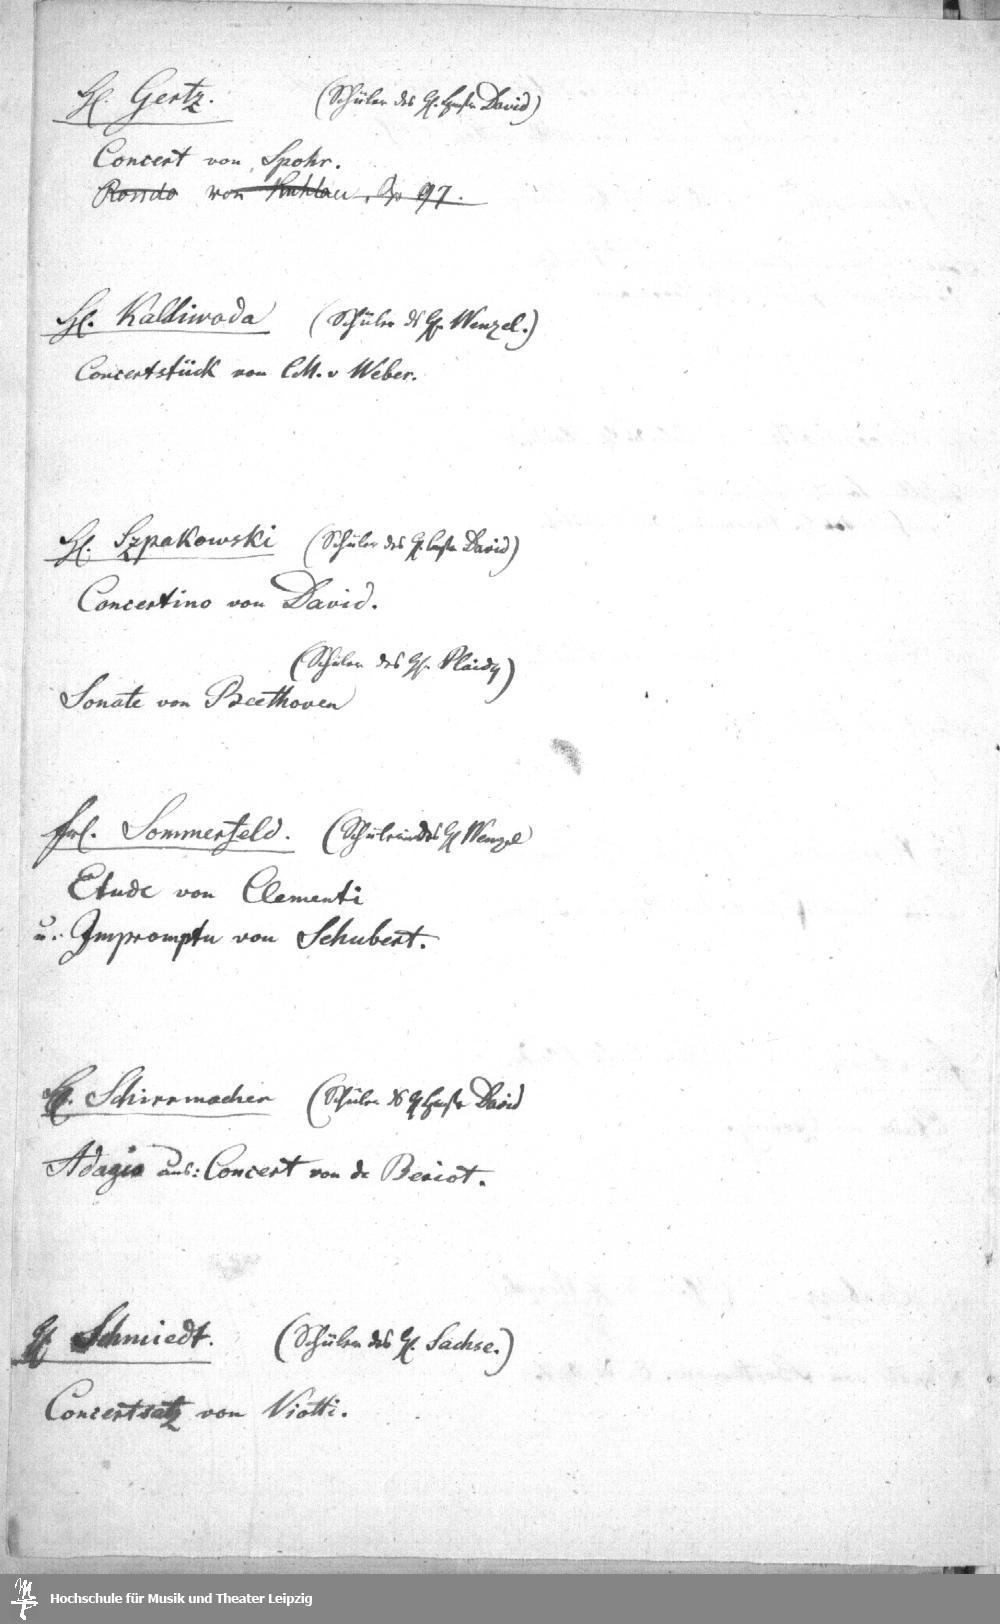 H. Gertz. (Schüler des H. Concertm David)
Concert von Spohr.
Rondo von Kuhlau, Op 97.
H. Kalliwoda (Schüler des H. Wenzel.)
Concertstück von C.M. v Weber.
H. Szpakowski (Schüler des H. David)
Concertino von David.
(Schüler des H. Plaidy)
Sonate von Beethoven
Frl. Sommerfeld. (Schülerin des H Wenzel
Etude von Clementi
u. Impromptu von Schubert.
H. Schirrmacher (Schüler ds H David
Adagio aus: Concert von de Beriot.
H Schmiedt. (Schüler des H. Sachse.)
Concertsatz von Viotti.
Hochschule für Musik und Theater Leipzig